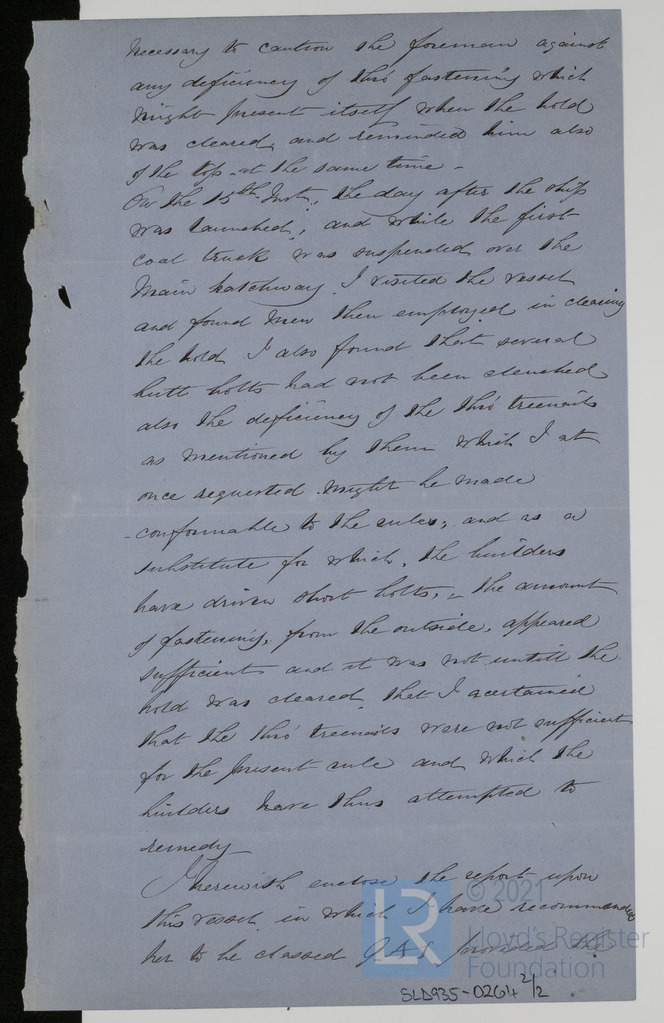 necessary to caution the foreman against
any deficiency of thro' fastening which
might present itself when the hold
was cleared, and reminded him also
of the top at the same time -
On the 15th Inst., the day after the ship
was launched, and while the first
coal truck was suspended over the
Main hatchway. I visited the vessel
and found men then employed in clearing
the hold I also found that several
butt bolts had not been clenched
also the deficiency of the thro' treenails
as mentioned by them which I at
once requested might be made
conformable to the rules; and as a
substitute for which, the builders
have driven short bolts, - the amount
of fastening, from the outside, appeared
sufficient and it was not untill the
hold was cleared, that I acertained
that the thro' treenails were not sufficient
for the present rule and which the
builders have thus attempted to
remedy
I herewith enclose the report upon
this vessel in which I have recommended
her to be classed provided the
LR
© 2021
Lloyd's Register
Foundation
SLD935-0264 2/2